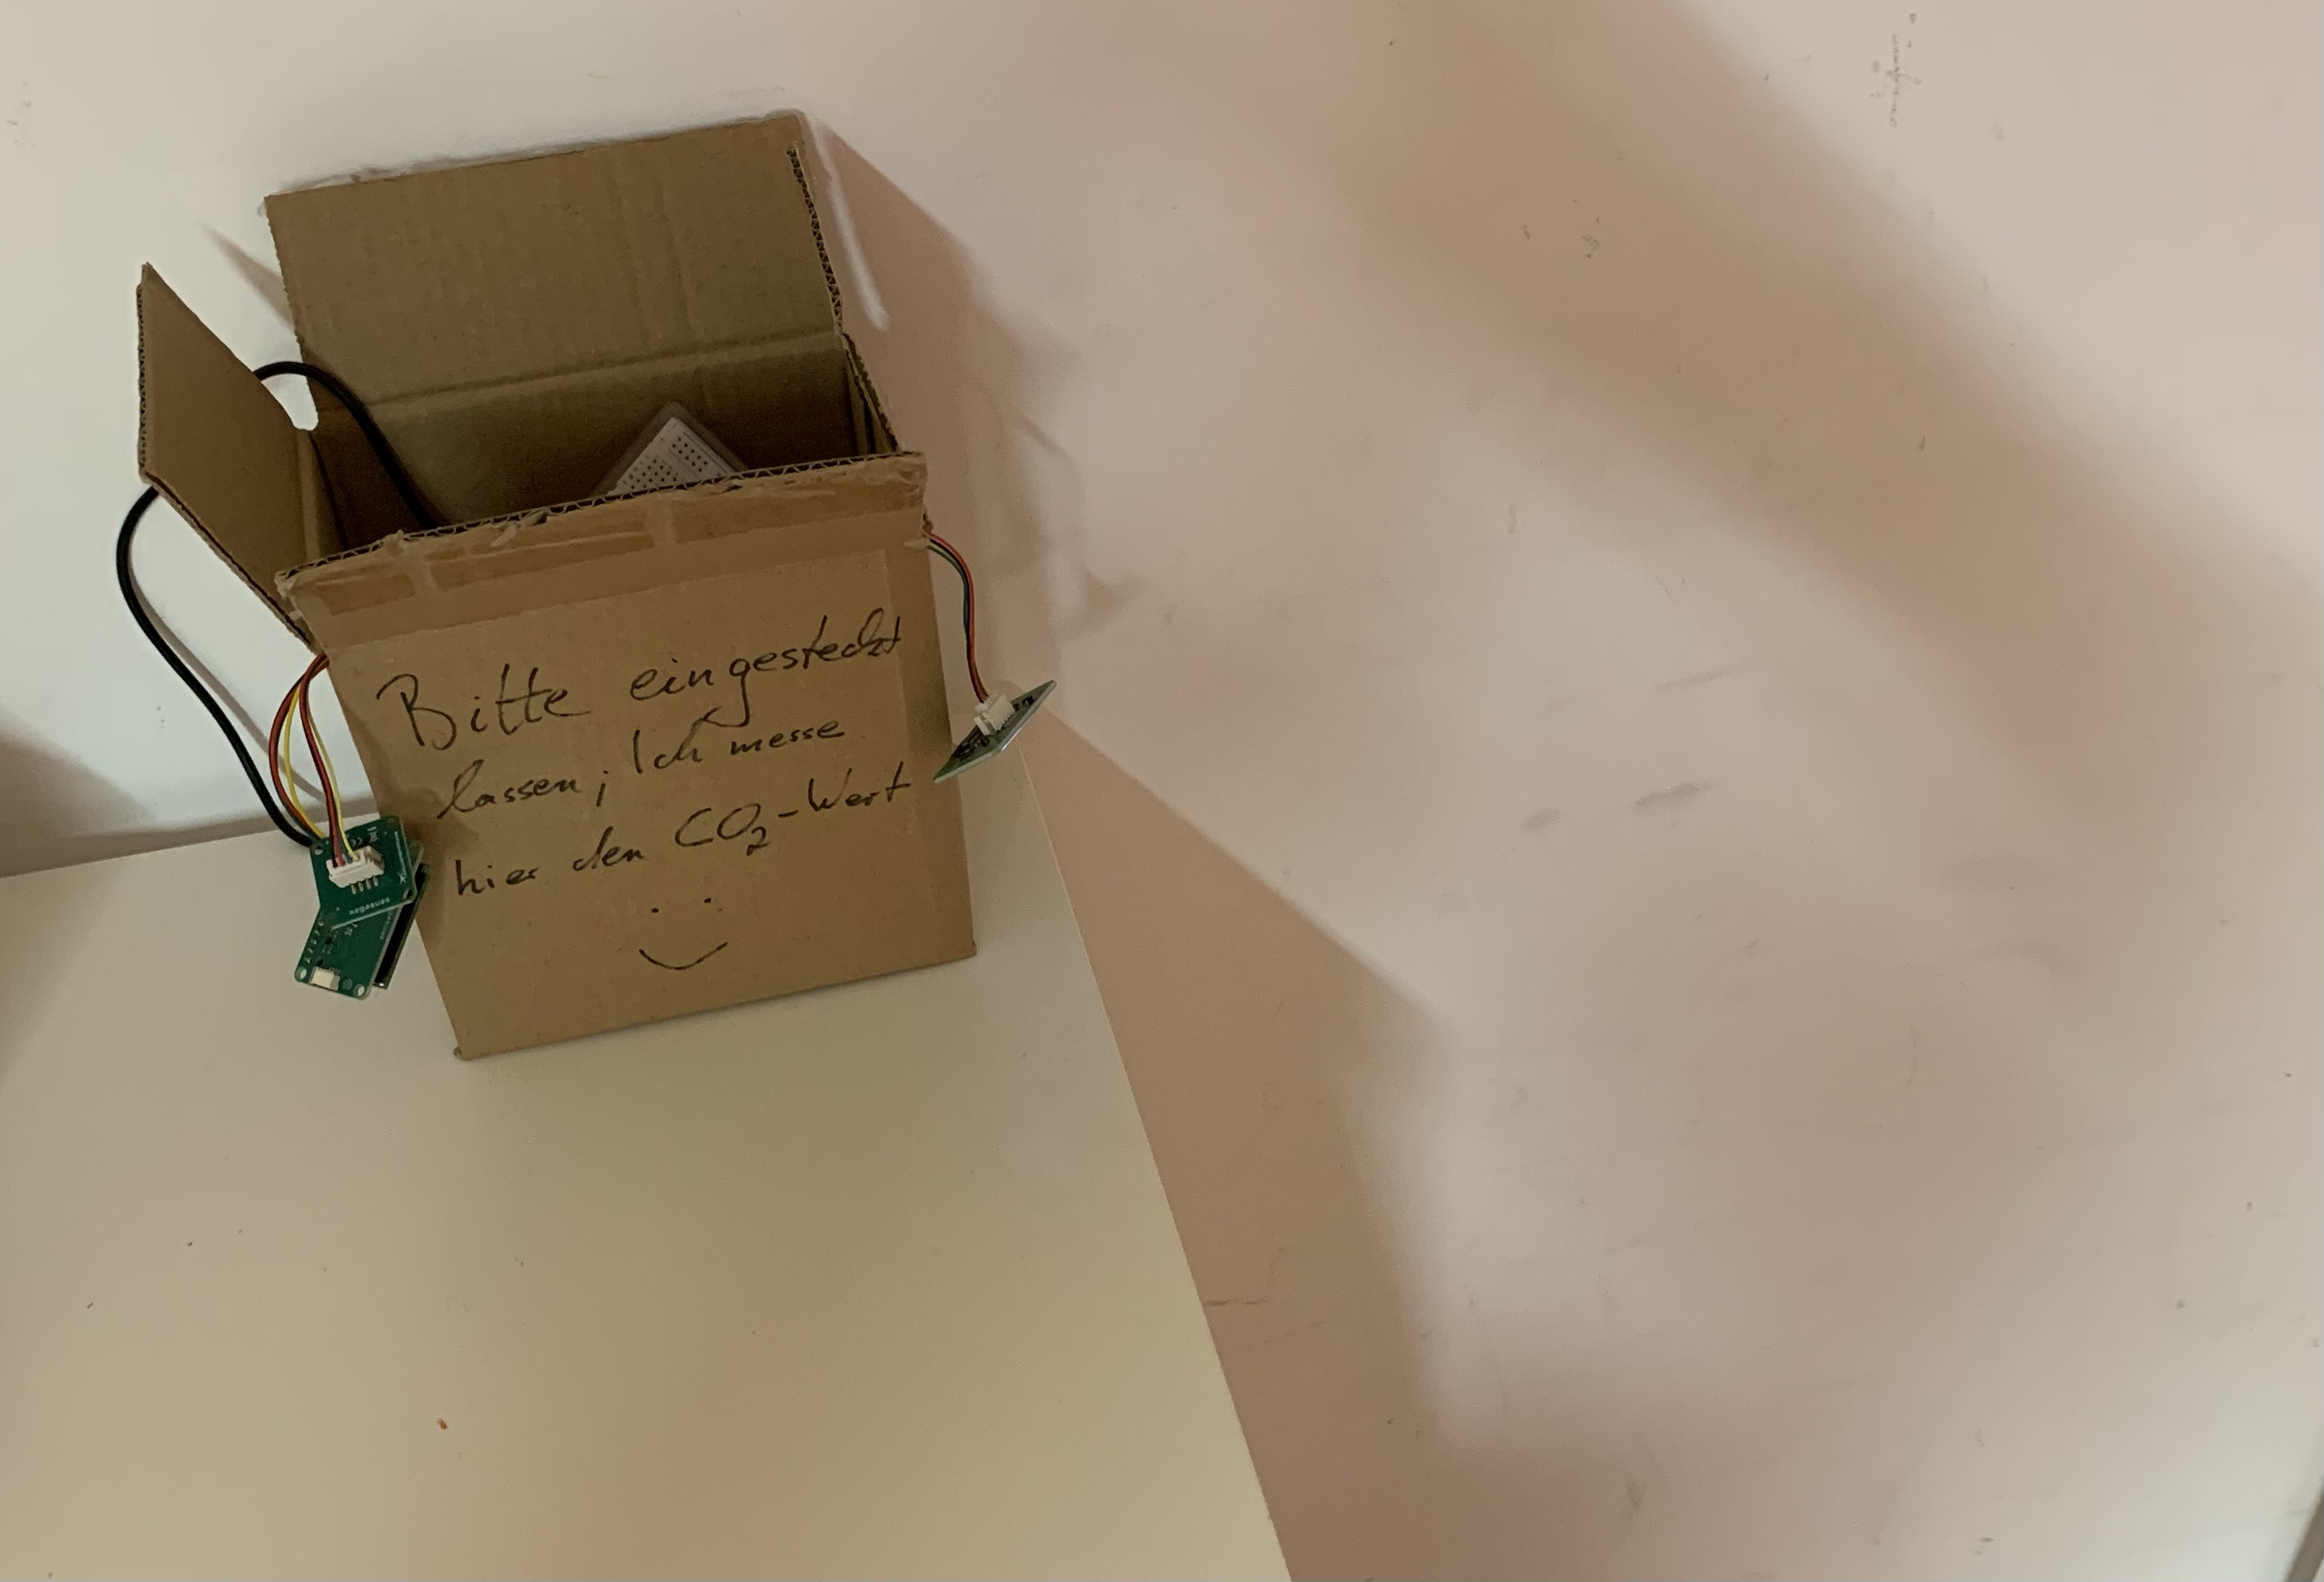 Bitte eingesteckt
lassen, Ich messe
hier den CO₂-Wert
senseBox